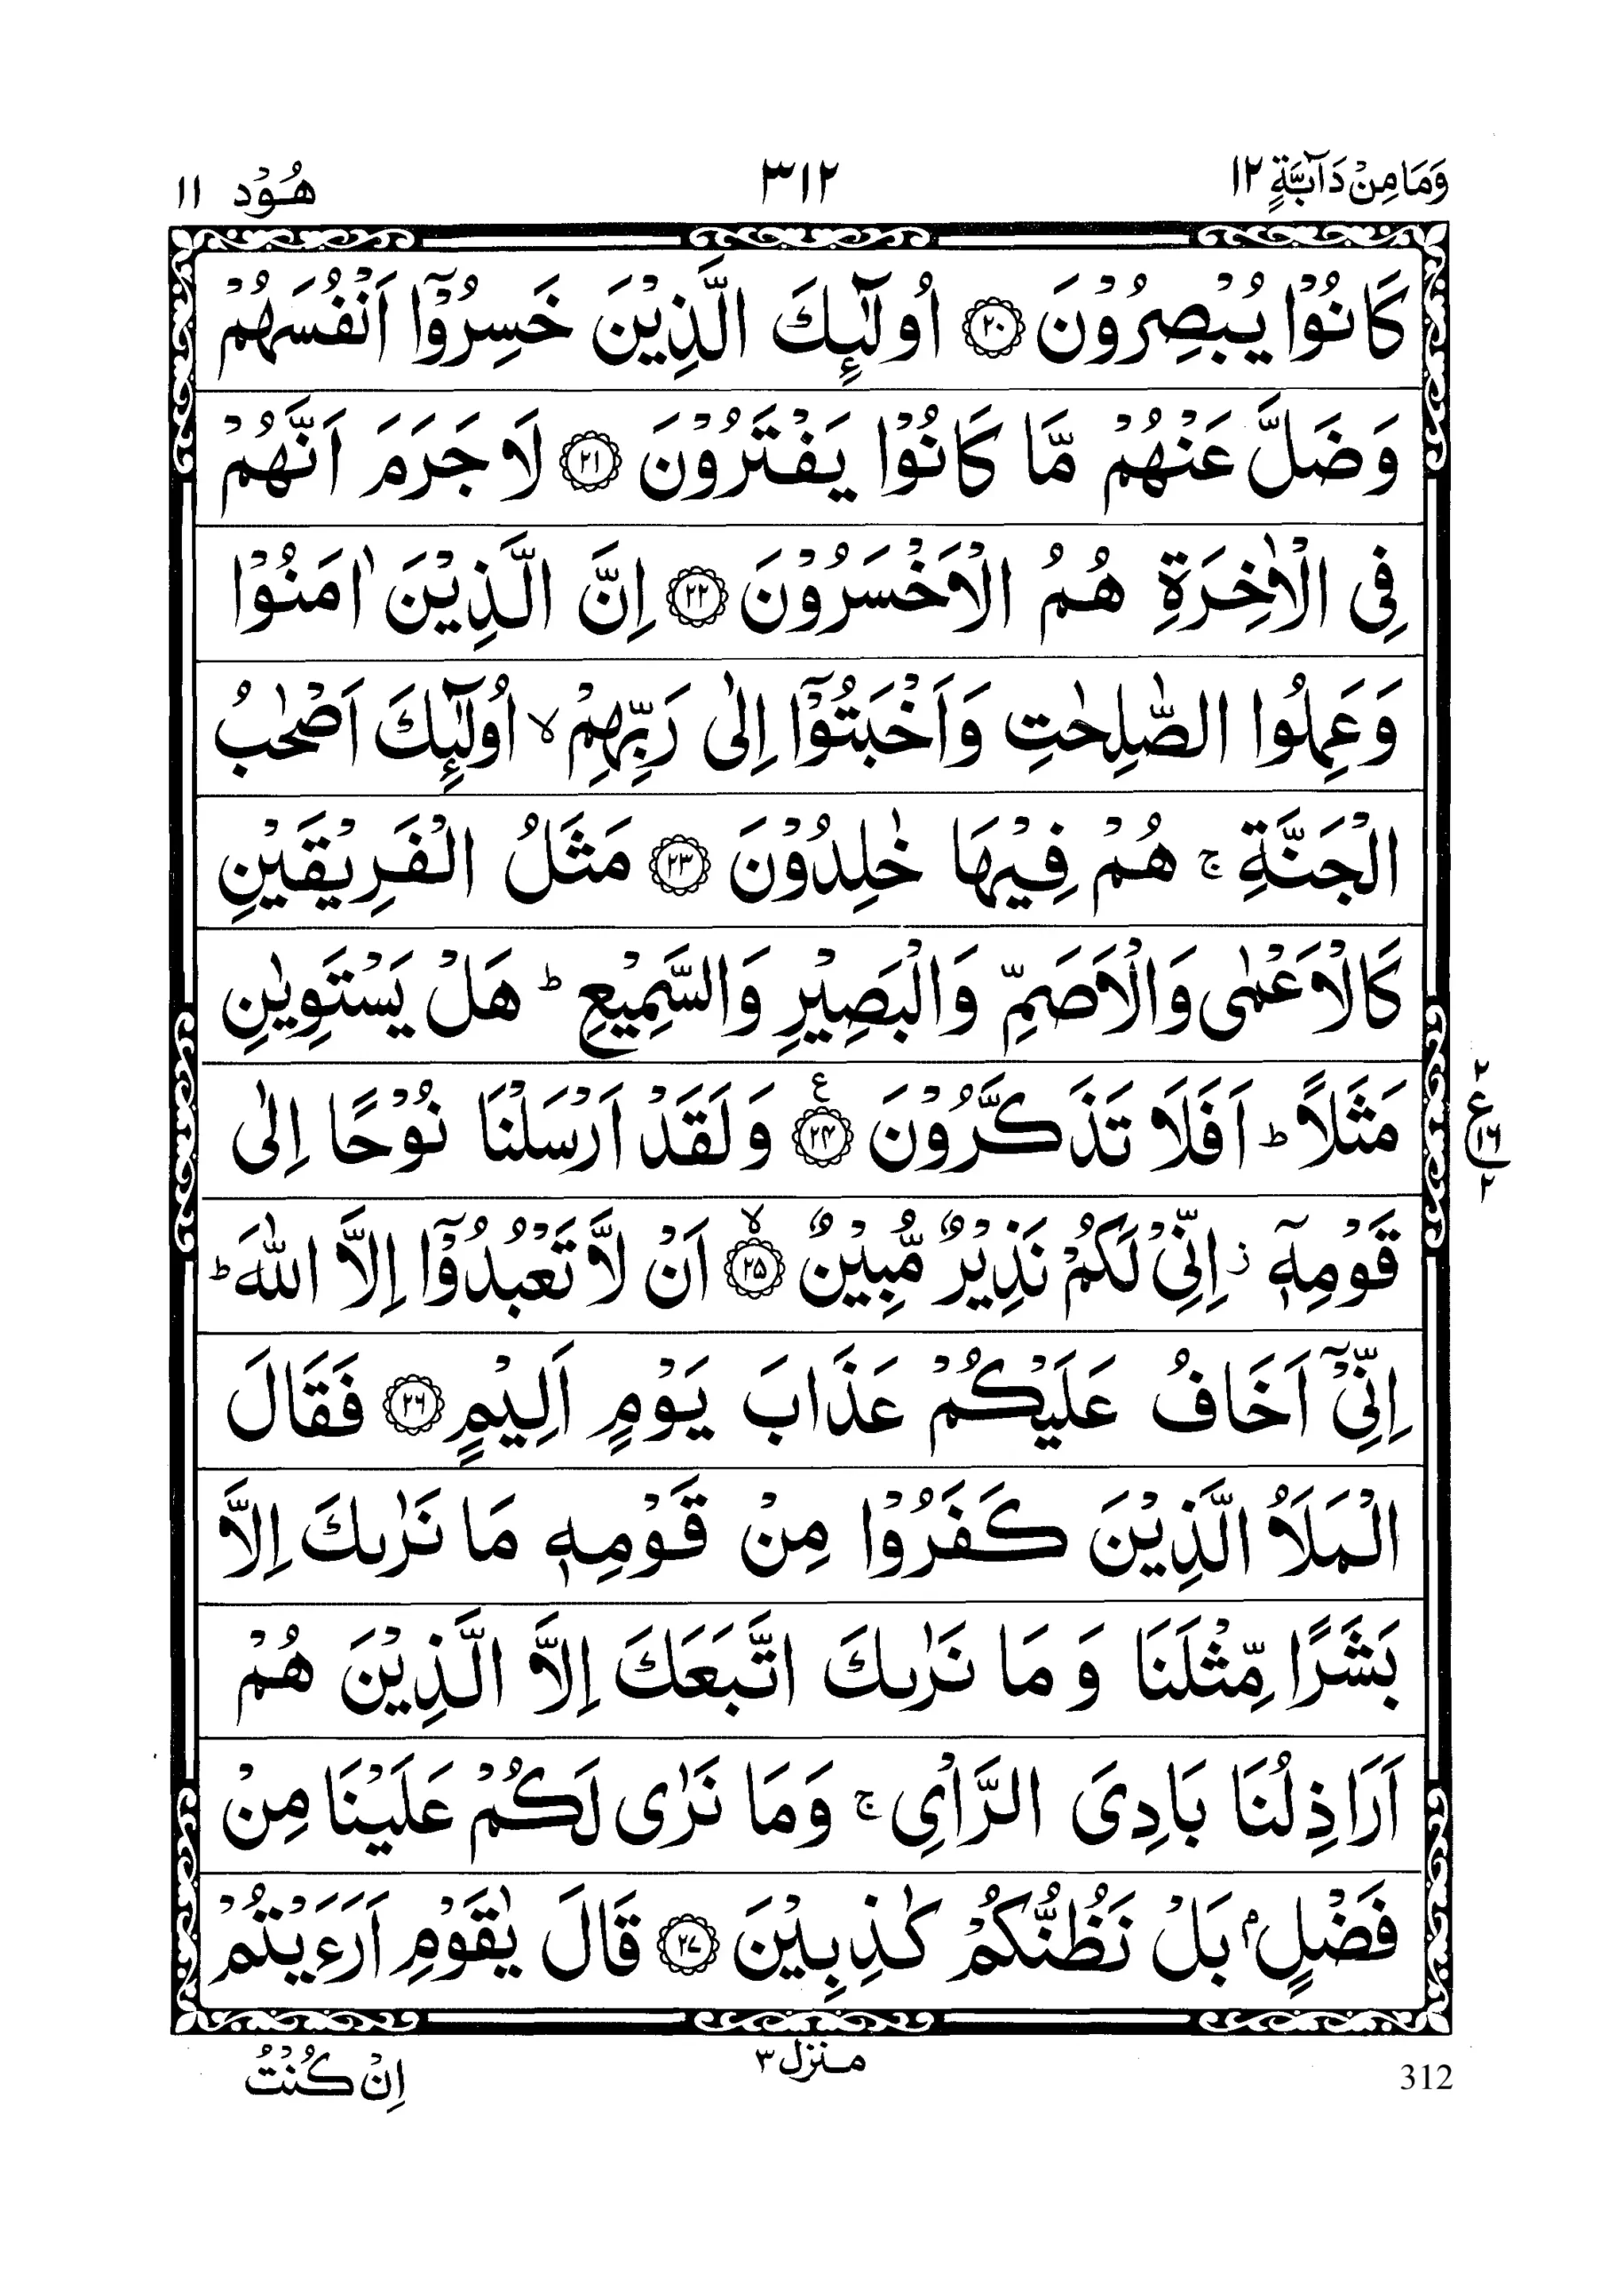 وَمَا مِنْ دَآبَّةٍ ١٢ ٣١٢ هُوْد ١١
كَانُوْا يُبْصِرُوْنَ ﴿۲۰﴾ اُولٰٓئِكَ الَّذِيْنَ خَسِرُوْٓا اَنْفُسَهُمْ
وَضَلَّ عَنْهُمْ مَّا كَانُوْا يَفْتَرُوْنَ ﴿۲۱﴾ لَا جَرَمَ اَنَّهُمْ
فِى الْاٰخِرَةِ هُمُ الْاَخْسَرُوْنَ ﴿۲۲﴾ اِنَّ الَّذِيْنَ اٰمَنُوْا
وَعَمِلُوا الصّٰلِحٰتِ وَاَخْبَتُوْٓا اِلٰى رَبِّهِمْ ۙ اُولٰٓئِكَ اَصْحٰبُ
الْجَنَّةِ ۚ هُمْ فِيْهَا خٰلِدُوْنَ ﴿۲۳﴾ مَثَلُ الْفَرِيْقَيْنِ
كَالْاَعْمٰى وَالْاَصَمِّ وَالْبَصِيْرِ وَالسَّمِيْعِ ؕ هَلْ يَسْتَوِيٰنِ
مَثَلًا ؕ اَفَلَا تَذَكَّرُوْنَ ﴿۲۴﴾ ع وَلَقَدْ اَرْسَلْنَا نُوْحًا اِلٰى
٢ ع ١٦ ٢
قَوْمِهٖٓ ز اِنِّىْ لَكُمْ نَذِيْرٌ مُّبِيْنٌ ۙ﴿۲۵﴾ اَنْ لَّا تَعْبُدُوْٓا اِلَّا اللّٰهَ ؕ
اِنِّىْٓ اَخَافُ عَلَيْكُمْ عَذَابَ يَوْمٍ اَلِيْمٍ ﴿۲۶﴾ فَقَالَ
الْمَلَاُ الَّذِيْنَ كَفَرُوْا مِنْ قَوْمِهٖ مَا نَرٰىكَ اِلَّا
بَشَرًا مِّثْلَنَا وَمَا نَرٰىكَ اتَّبَعَكَ اِلَّا الَّذِيْنَ هُمْ
اَرَاذِلُنَا بَادِىَ الرَّاْىِ ۚ وَمَا نَرٰى لَكُمْ عَلَيْنَا مِنْ
فَضْلٍۭ بَلْ نَظُنُّكُمْ كٰذِبِيْنَ ﴿۲۷﴾ قَالَ يٰقَوْمِ اَرَءَيْتُمْ
312 منزل ٣ اِنْ كُنْتُ